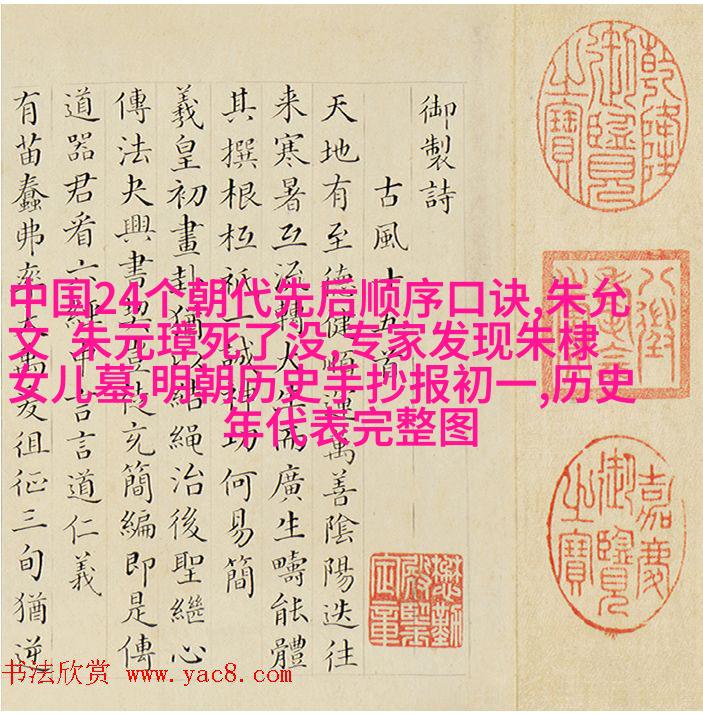 中国24个朝代先后顺序口诀,朱允
文 朱元璋死了没 专家发现朱棣
女儿墓,明朝历史手抄报初一,历史
年代表完整图
御製詩
古風十五首
天地有至德健順運萬善陰陽迭往
来寒暑互流轉大而廣生疇能體
其撰根柢祇一誠神功何易簡
羲皇初畫卦猶以結繩治後聖繼心
傳法夬興書契豈徒充簡編即是傳
道器君看六經中言言道仁義
有苗蠢弗率大禹爰徂征三旬猶逆
乾隆御覽之寶
嘉慶御覽之寶
書法欣赏 www.yac8.com